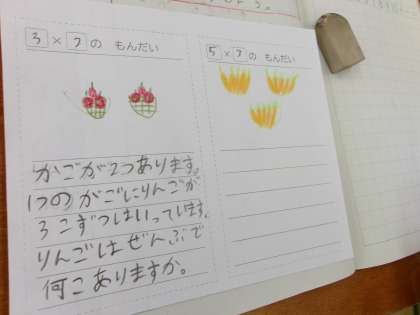 3×2の もんだい
かごが2つあります。
1つのかごにりんごが
3こずつはいっています。
りんごはぜんぶで
何こありますか。
5×3の もんだい